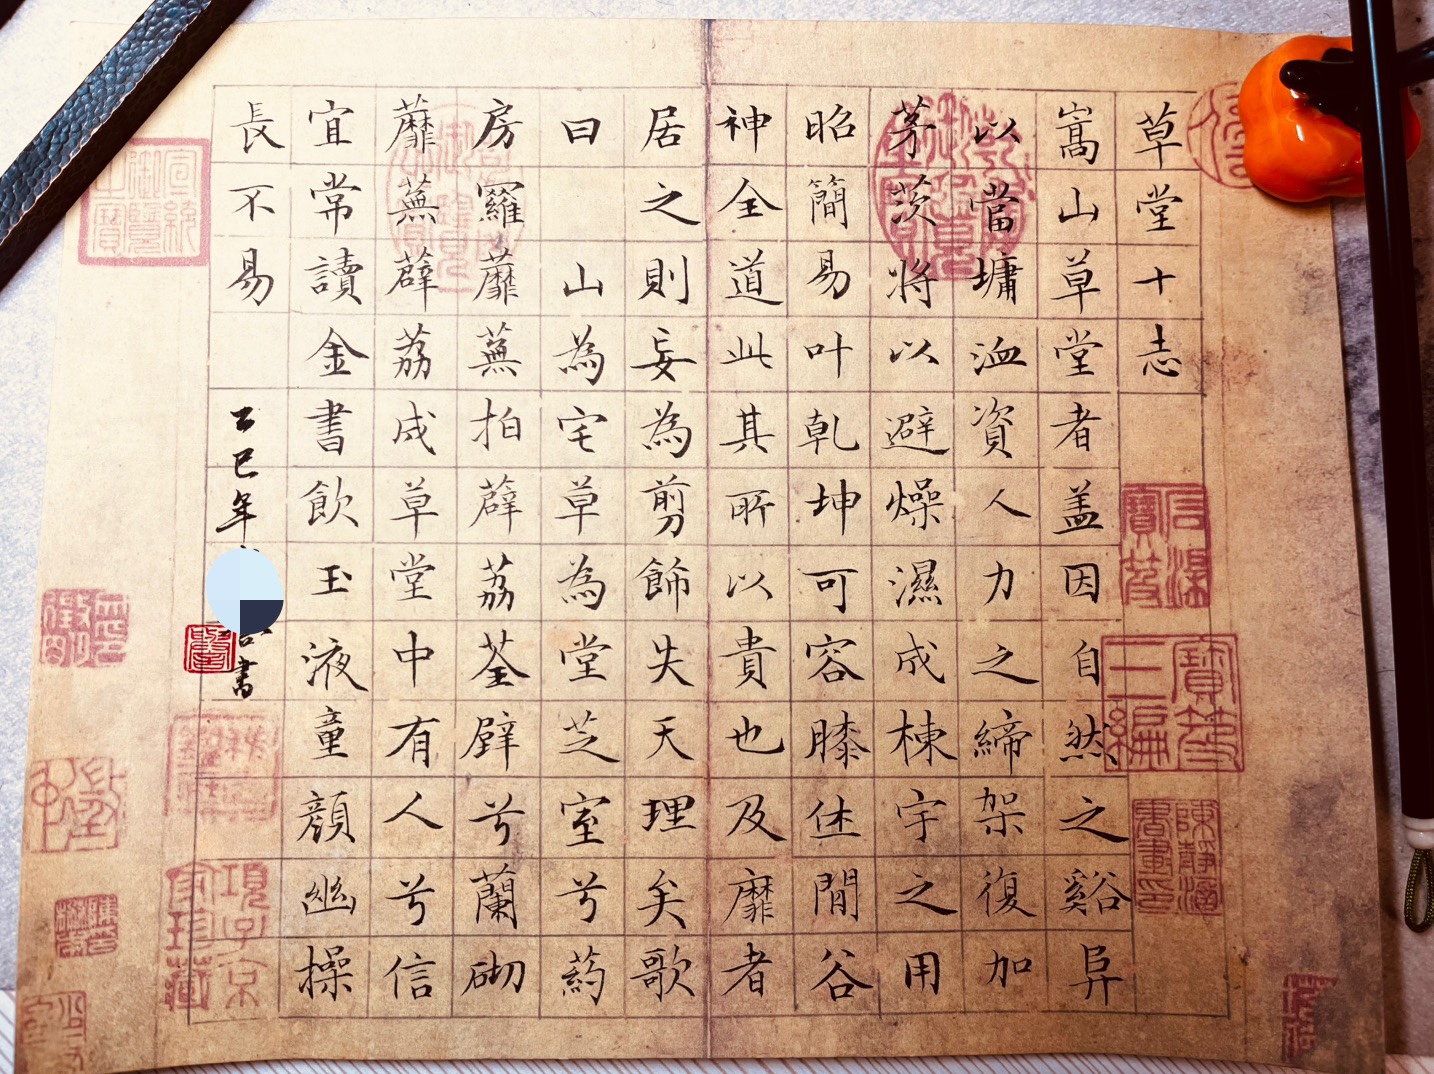 草堂十志
嵩山草堂者盖因自然之谿阜
以當墉洫資人力之締架復加
茅茨將以避燥濕成棟宇之用
昭簡易叶乾坤可容膝休閒谷
神全道此其所以貴也及靡者
居之則妄為剪飾失天理矣歌
曰山為宅草為堂芝室兮葯
房羅蘼蕪拍薜荔荃壁兮蘭砌
蘼蕪薜荔成草堂中有人兮信
宜常讀金書飲玉液童顏幽操
長不易
乙巳年 書
石渠寶笈
寶笈三編
項子京家珍藏